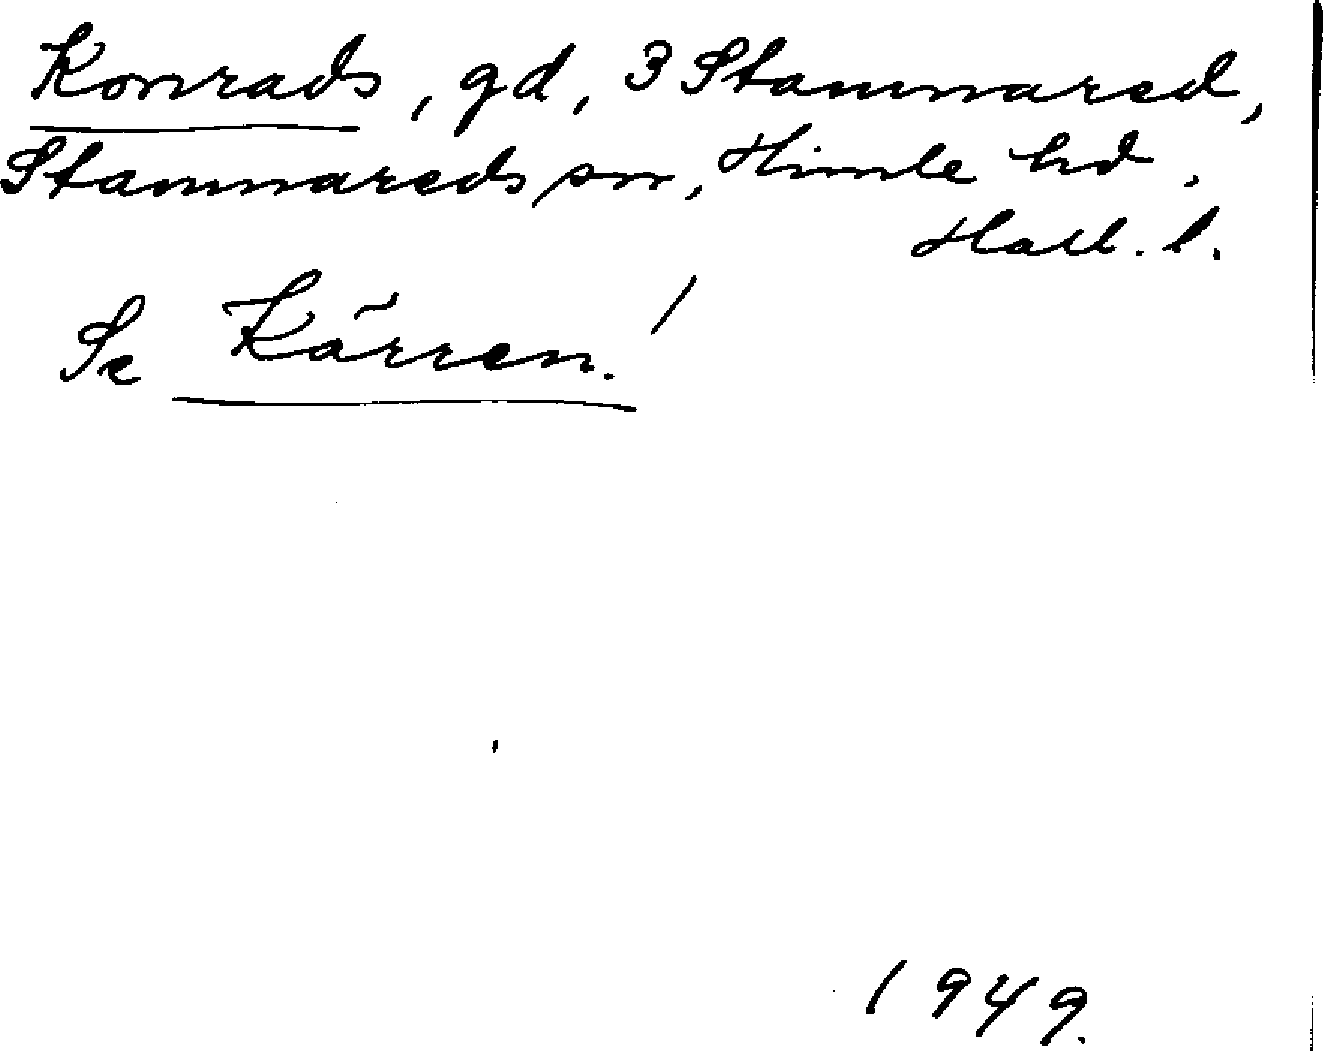 Konrads, gd, 3 Stamnared,
Stamnareds sn, Himle hd,
Hall. l.
Se Kärren!
1949.